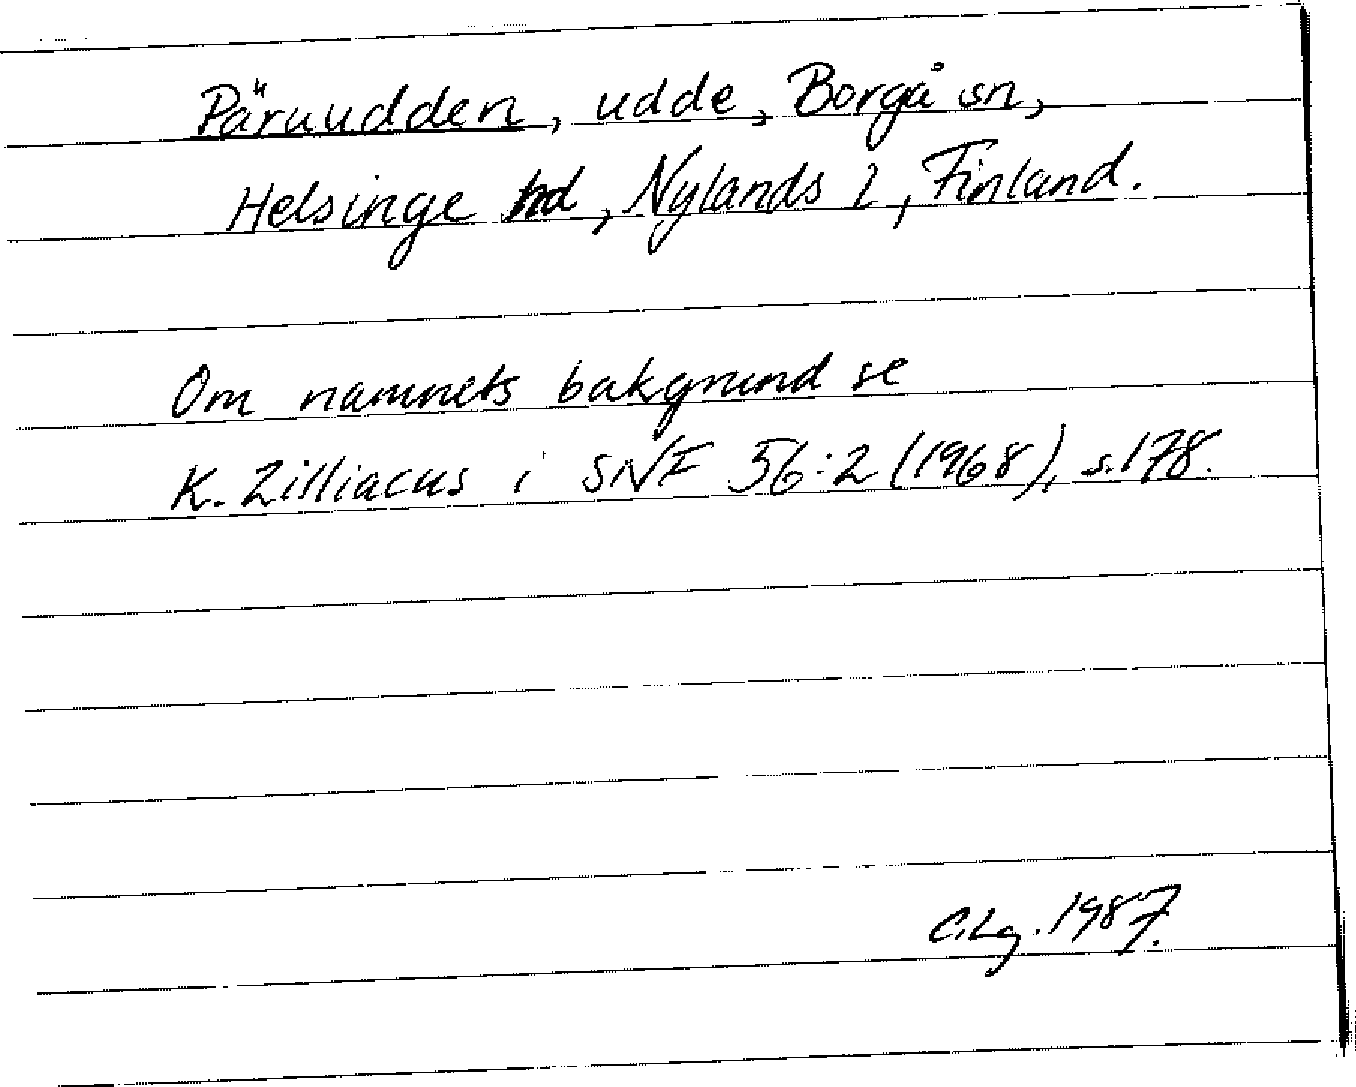 Päruudden, udde, Borgå sn,
Helsinge hd, Nylands l, Finland.
Om namnets bakgrund se
K. Zilliacus i SNF 56:2 (1968), s. 178.
C.Lg. 1987.